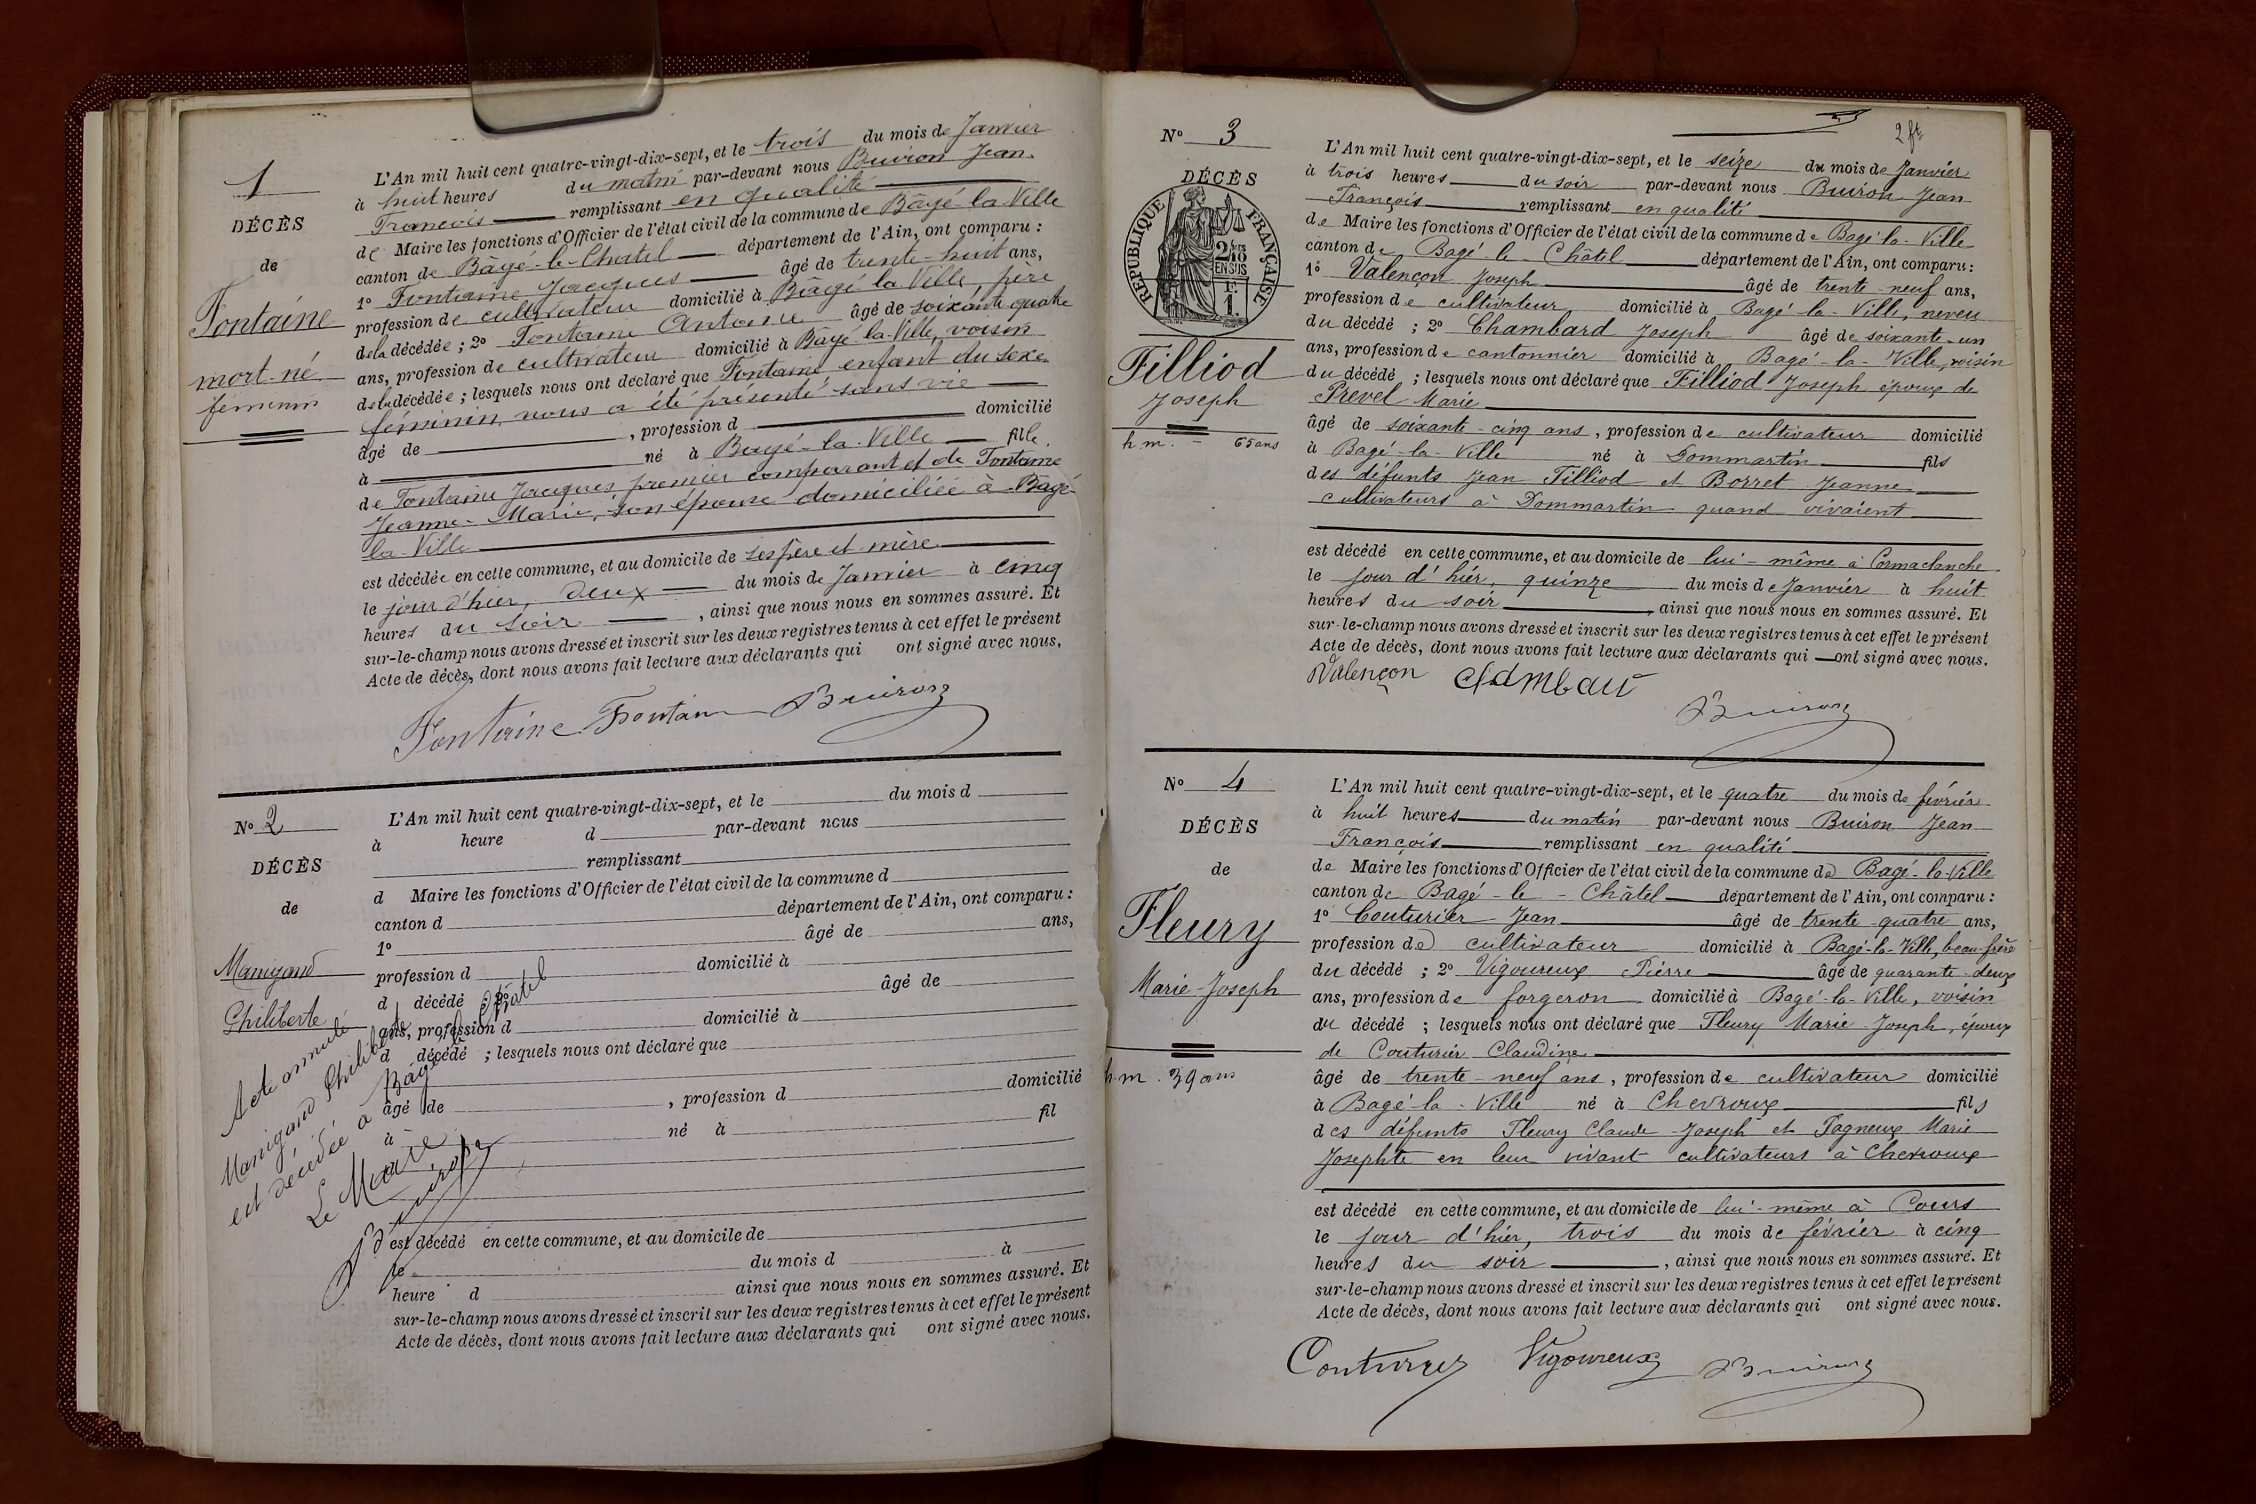 1
DÉCÈS
de
Fontaine
mort-né
féminin
L'An mil huit cent quatre-vingt-dix-sept, et le trois du mois de Janvier
à huit heures du matin par-devant nous Buiron Jean
François remplissant en qualité
de Maire les fonctions d'Officier de l'état civil de la commune de Bâgé-la-Ville
canton de Bâgé-le-Chatel département de l'Ain, ont comparu :
1º Fontaine Jacques âgé de trente-huit ans,
profession de cultivateur domicilié à Bâgé la Ville, père
de la décédée ; 2º Fontaine Antoine âgé de soixante quatre
ans, profession de cultivateur domicilié à Bâgé-la-Ville, voisin
de la décédée ; lesquels nous ont déclaré que Fontaine enfant du sexe
féminin, nous a été présenté sans vie
âgé de , profession d domicilié
à né à Bâgé-la-Ville fille
de Fontaine Jacques premier comparant et de Fontaine
Jeanne-Marie, son épouse domiciliée à Bâgé-
la-Ville
est décédée en cette commune, et au domicile de ses père et mère
le jour d'hier, deux du mois de Janvier à cinq
heures du soir , ainsi que nous nous en sommes assuré. Et
sur-le-champ nous avons dressé et inscrit sur les deux registres tenus à cet effet le présent
Acte de décès, dont nous avons fait lecture aux déclarants qui ont signé avec nous.
Fontaine Fontain Buiron
Nº 2
DÉCÈS
de
Manigand
Philiberte
L'An mil huit cent quatre-vingt-dix-sept, et le du mois d
à heure d par-devant nous
remplissant
d Maire les fonctions d'Officier de l'état civil de la commune d
canton d département de l'Ain, ont comparu :
1º âgé de ans,
profession d domicilié à
d décédé ; 2º âgé de
ans, profession d domicilié à
d décédé ; lesquels nous ont déclaré que
âgé de , profession d domicilié
à né à fil
est décédé en cette commune, et au domicile de
le du mois d à
heure d ainsi que nous nous en sommes assuré. Et
sur-le-champ nous avons dressé et inscrit sur les deux registres tenus à cet effet le présent
Acte de décès, dont nous avons fait lecture aux déclarants qui ont signé avec nous.
Acte annulé
Manigand Philiberte
est décédée à Bâgé le Chatel
Le Maire
Buiron
2 ft
Nº 3
DÉCÈS
RÉPUBLIQUE FRANÇAISE
2/10 EN SUS
1 F.
Filliod
Joseph
h.m. - 65 ans
L'An mil huit cent quatre-vingt-dix-sept, et le seize du mois de Janvier
à trois heures du soir par-devant nous Buiron Jean
François remplissant en qualité
de Maire les fonctions d'Officier de l'état civil de la commune de Bagé-la-Ville
canton de Bagé-le-Châtel département de l'Ain, ont comparu :
1º Valençon Joseph âgé de trente neuf ans,
profession de cultivateur domicilié à Bagé-la-Ville, neveu
du décédé ; 2º Chambard Joseph âgé de soixante-un
ans, profession de cantonnier domicilié à Bagé-la-Ville, voisin
du décédé ; lesquels nous ont déclaré que Filliod Joseph époux de
Prevel Marie
âgé de soixante-cinq ans, profession de cultivateur domicilié
à Bagé-la-Ville né à Dommartin fils
des défunts Jean Filliod et Borret Jeanne
cultivateurs à Dommartin quand vivaient
est décédé en cette commune, et au domicile de lui-même à Cormaclanche
le jour d'hier, quinze du mois de Janvier à huit
heures du soir , ainsi que nous nous en sommes assuré. Et
sur-le-champ nous avons dressé et inscrit sur les deux registres tenus à cet effet le présent
Acte de décès, dont nous avons fait lecture aux déclarants qui ont signé avec nous.
Valençon Buiron
Nº 4
DÉCÈS
de
Fleury
Marie-Joseph
h.m. 39 ans
L'An mil huit cent quatre-vingt-dix-sept, et le quatre du mois de février
à huit heures du matin par-devant nous Buiron Jean
François remplissant en qualité
de Maire les fonctions d'Officier de l'état civil de la commune de Bagé-la-Ville
canton de Bagé-le-Châtel département de l'Ain, ont comparu :
1º Couturier Jean âgé de trente quatre ans,
profession de cultivateur domicilié à Bagé-la-Ville, beau-frère
du décédé ; 2º Vigoureux Pierre âgé de quarante-deux
ans, profession de forgeron domicilié à Bagé-la-Ville, voisin
du décédé ; lesquels nous ont déclaré que Fleury Marie-Joseph, époux
de Couturier Claudine
âgé de trente-neuf ans, profession de cultivateur domicilié
à Bagé-la-Ville né à Chevroux fils
des défunts Fleury Claude-Joseph et Pagneux Marie
Josephte en leur vivant cultivateurs à Chevroux
est décédé en cette commune, et au domicile de lui-même à Cours
le jour d'hier, trois du mois de février à cinq
heures du soir , ainsi que nous nous en sommes assuré. Et
sur-le-champ nous avons dressé et inscrit sur les deux registres tenus à cet effet le présent
Acte de décès, dont nous avons fait lecture aux déclarants qui ont signé avec nous.
Couturier Vigoureux Buiron